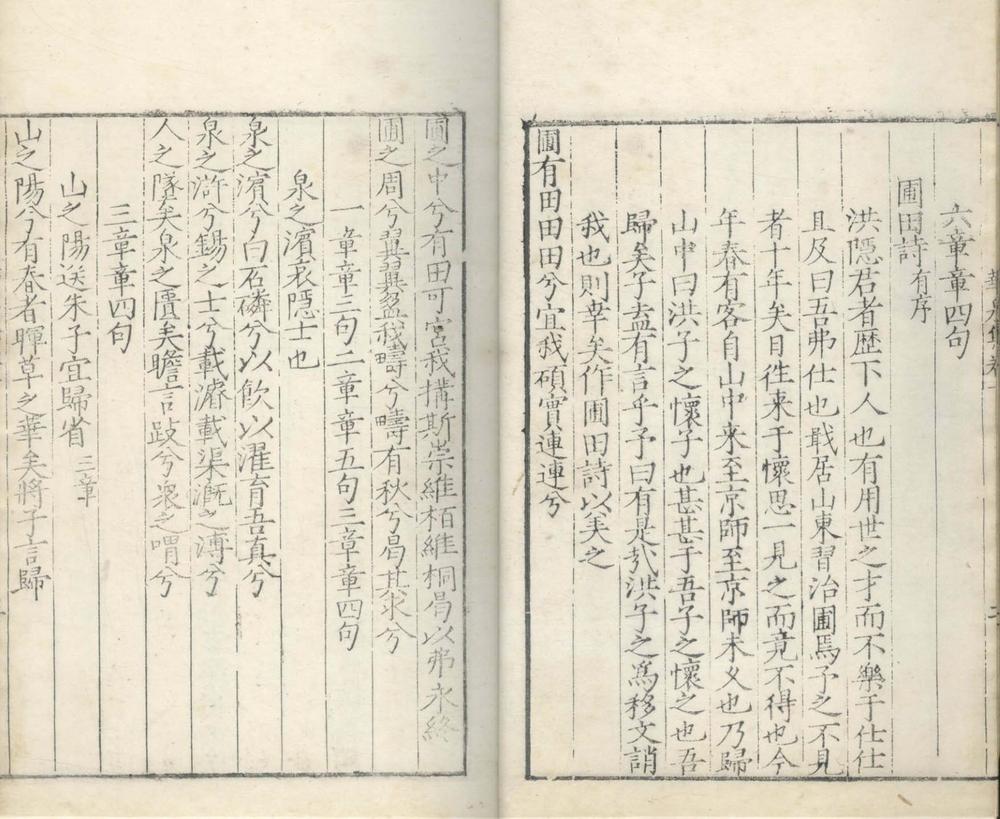 華泉集卷一
六章章四句
圃田詩有序
洪隱君者歷下人也有用世之才而不樂于仕仕
且及曰吾弗仕也戢居山東習治圃焉予之不見
者十年矣目徃来于懷思一見之而竟不得也今
年春有客自山中来至京師至京師未乆也乃歸
山中曰洪子之懷子也甚甚于吾子之懷之也吾
歸矣子盍有言乎予曰有是㢤洪子之爲移文誚
我也則幸矣作圃田詩以美之
圃有田田田兮宜我碩實連連兮
圃之中兮有田可宮我搆斯崇維栢維桐胥以弗永終
圃之周兮翼翼盈我疇兮疇有秋兮曷其求兮
一章章三句二章章五句三章章四句
泉之濱哀隱士也
泉之濱兮白石磷兮以飲以濯育吾真兮
泉之滸兮錫之士兮載濬載渠溉之溥兮
人之墜矣泉之匱矣瞻言跂兮衆之喟兮
三章章四句
山之陽送朱子宜歸省三章
山之陽兮有春者暉草之華矣將子言歸